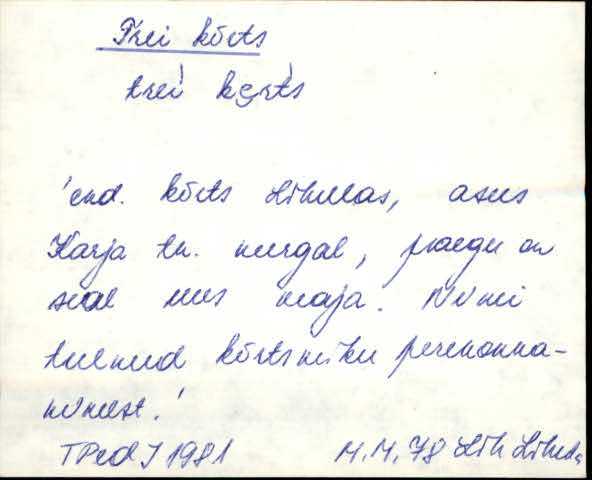 Trei kõrts
trei kęrt́s
'end. kõrts Lihulas, asus
Karja tn. nurgal, praegu on
seal uus maja. Nimi
tulnud kõrtsniku perekonna-
nimest.'
TPedI 1981 M.M. 78 Lih Lihula